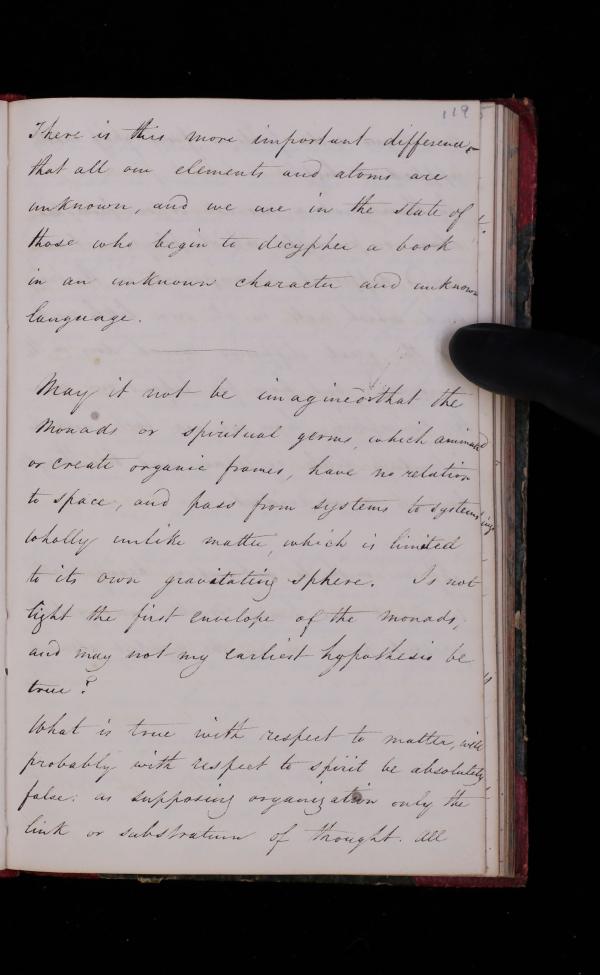 119
There is this more important difference,
that all our elements and atoms are
unknown, and we are in the state of
those who begin to decypher a book
in an unknown character and unknown
language.
May it not be imagined that the
Monads or spiritual germs, which animate
or create organic frames, have no relation
to space, and pass from systems to systems,
wholly unlike matter, which is limited
to its own gravitating sphere. Is not
light the first envelope of the monads,
and may not my earliest hypothesis be
true?
What is true with respect to matter, will
probably with respect to spirit be absolutely
false: as supposing organization only the
link or substratum of thought. All